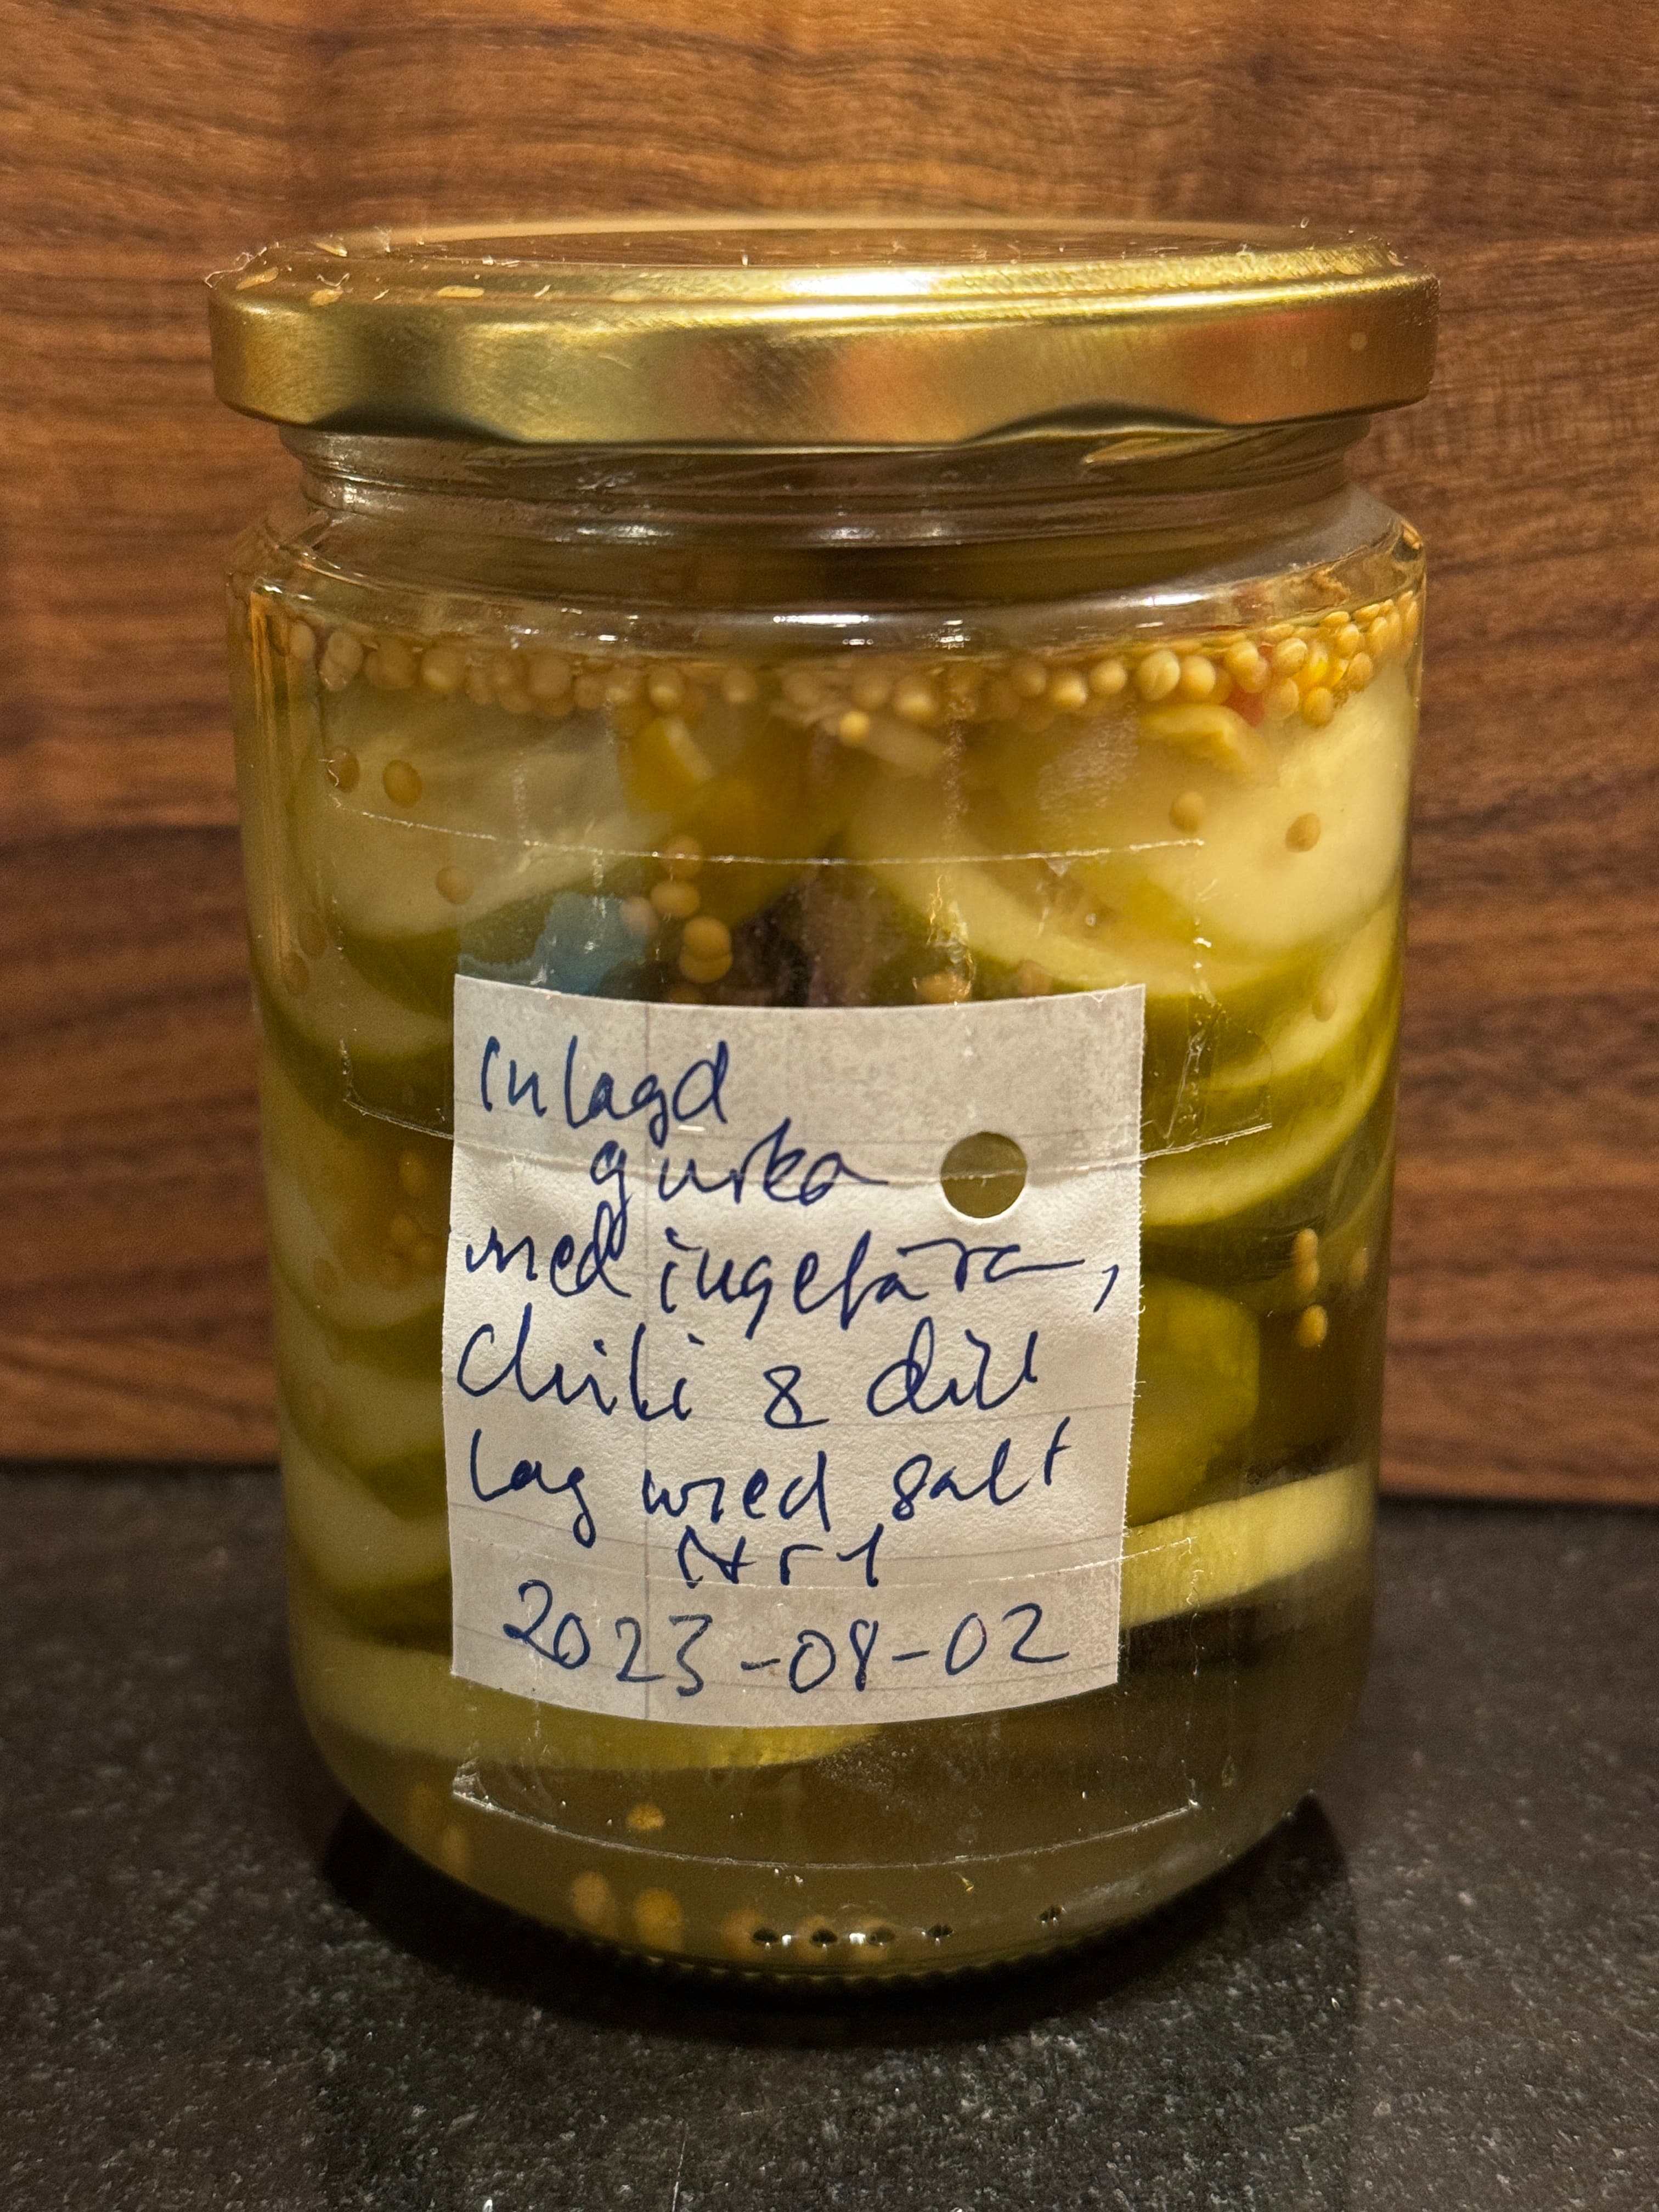 Inlagd
gurka
med ingefära,
Chili & dill
Lag med salt
Nr 1
2023-08-02